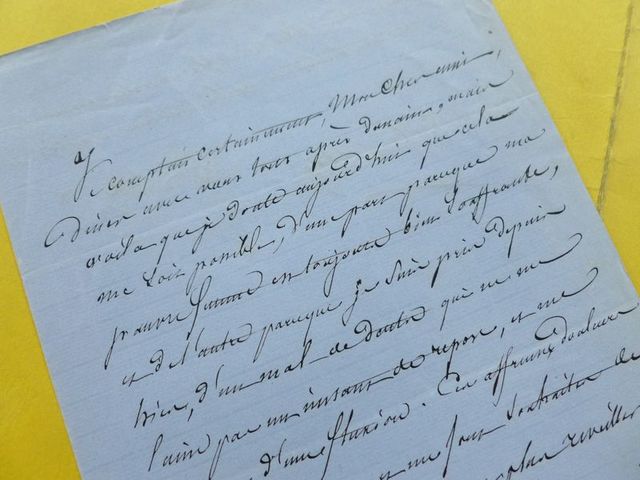 Je comptais certainement, Mon cher ami,
diner avec vous tous après demain, mais
voila que je doute aujourd'hui que cela
me soit possible, d'une part parceque ma
pauvre femme est toujours bien souffrante,
et de l'autre parceque je suis pris depuis
hier, d'un mal de dents que ne me
laisse pas un instant de repos, et me
d'une fluxion. Ces affreuses douleurs
me font
reveiller